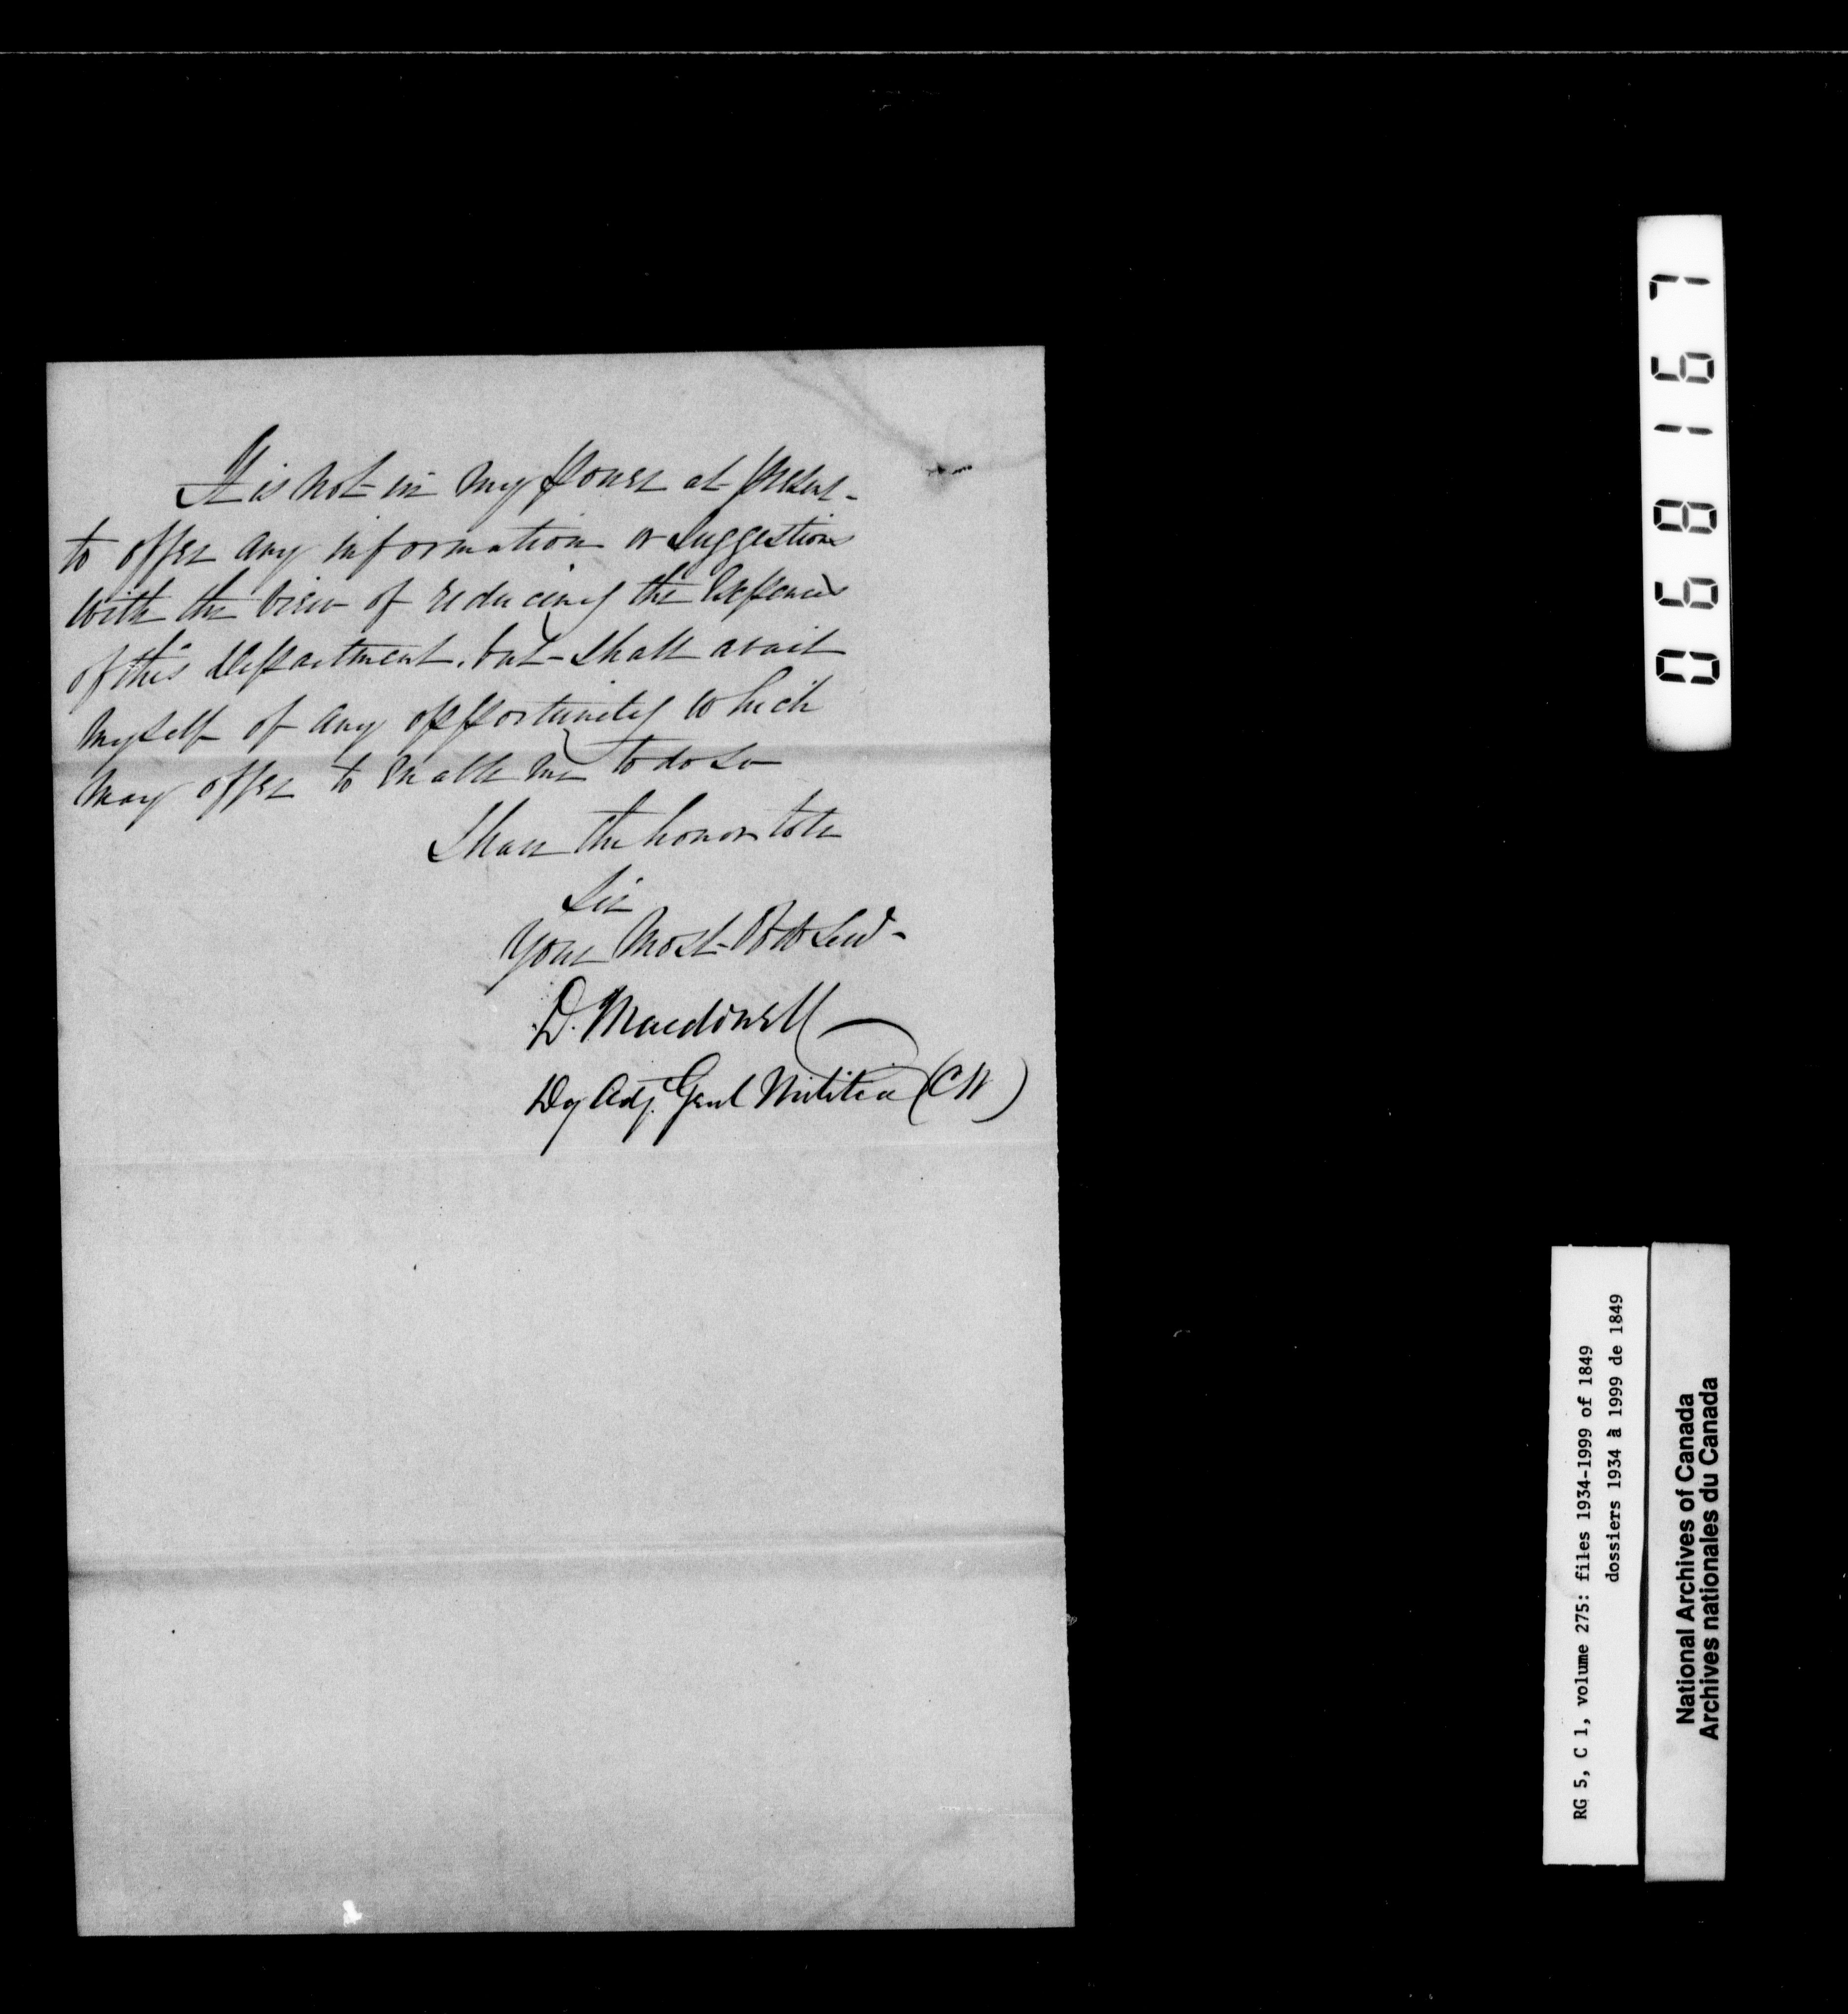 It is not in my power at present
to offer any information or suggestions
with the view of reducing the Expences
of this Department, but shall avail
myself of any opportunity which
may offer to enable me to do so
I have the honor to be
Sir
Your Most Obdt Servt
D. Macdonell
Dy Adj. Genl Militia (CW)
068167
RG 5, C 1, volume 275: files 1934-1999 of 1849
dossiers 1934 à 1999 de 1849
National Archives of Canada
Archives nationales du Canada